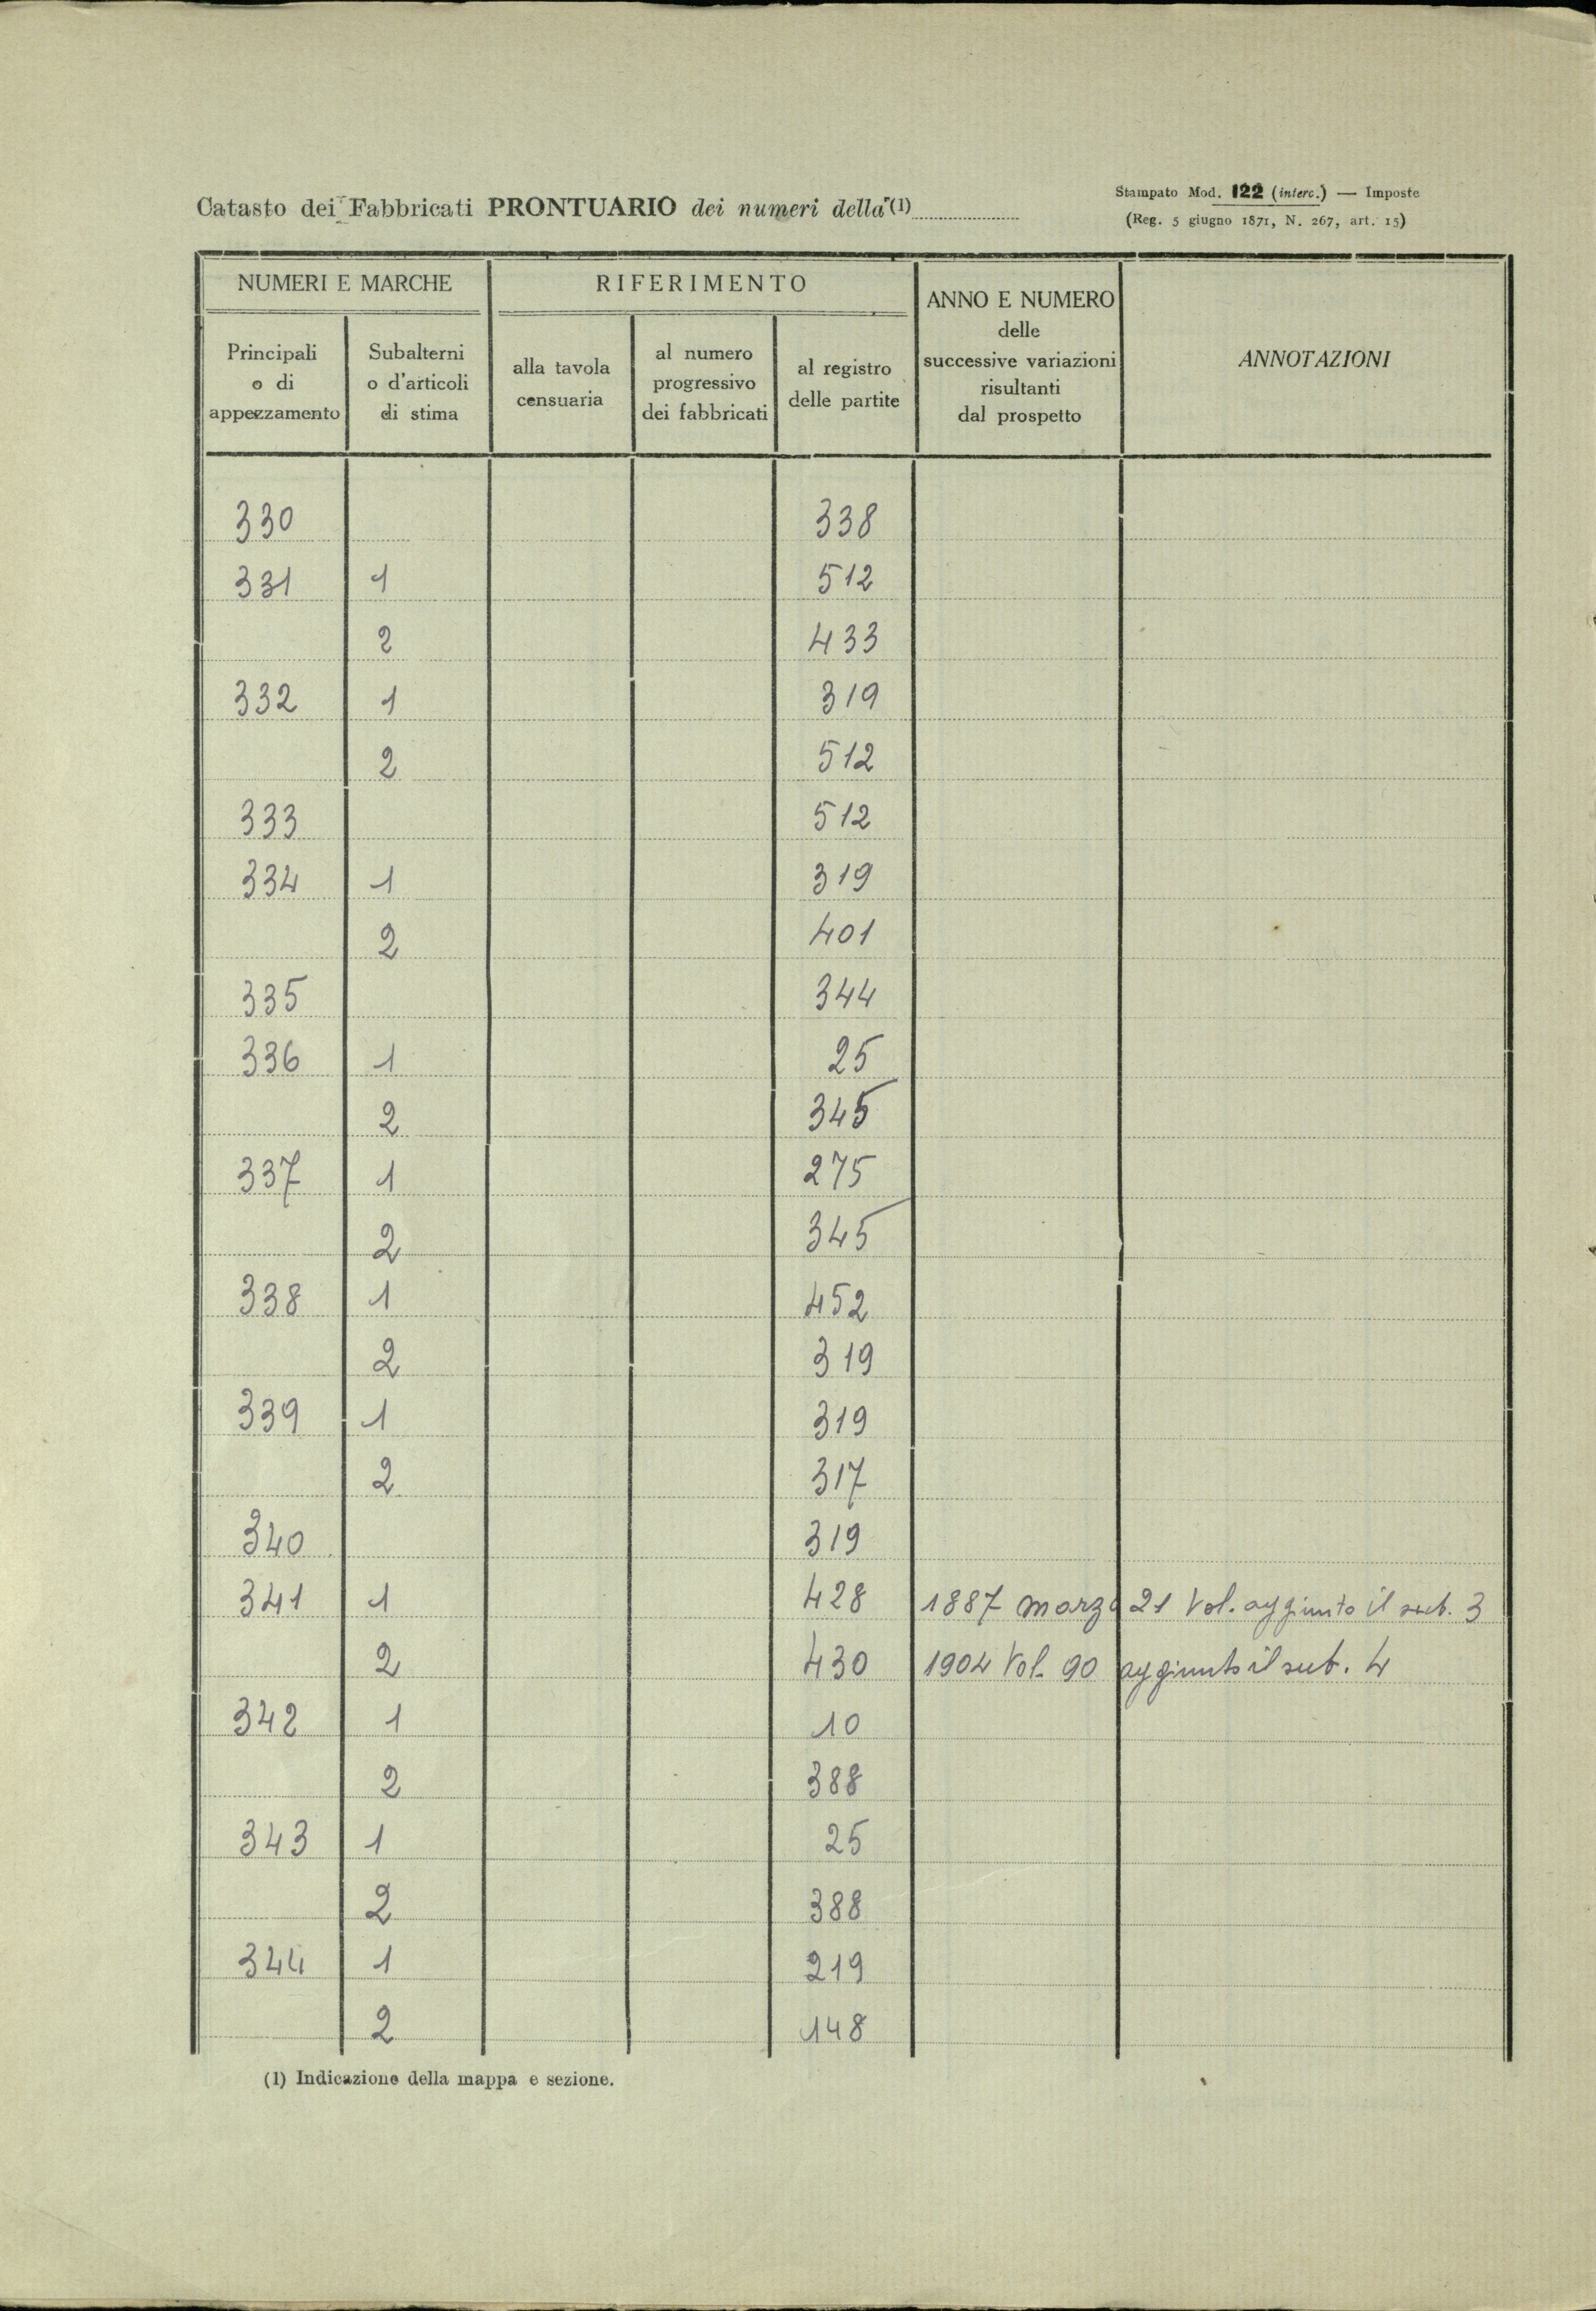 Catasto dei Fabbricati PRONTUARIO dei numeri della (1)
Stampato Mod. 122 (interc.) — Imposte
(Reg. 5 giugno 1871, N. 267, art. 15)
NUMERI E MARCHE
Principali
o di
appezzamento
Subalterni
o d'articoli
di stima
RIFERIMENTO
alla tavola
censuaria
al numero
progressivo
dei fabbricati
al registro
delle partite
ANNO E NUMERO
delle
successive variazioni
risultanti
dal prospetto
ANNOTAZIONI
330 338
331 1 512
2 433
332 1 319
2 512
333 512
334 1 319
2 401
335 344
336 1 25
2 345
337 1 275
2 345
338 1 452
2 319
339 1 319
2 317
340 319
341 1 428 1887 marzo 21 Vol. aggiunto il sub. 3
2 430 1904 Vol. 90 aggiunto il sub. 4
342 1 10
2 388
343 1 25
2 388
344 1 219
2 148
(1) Indicazione della mappa e sezione.